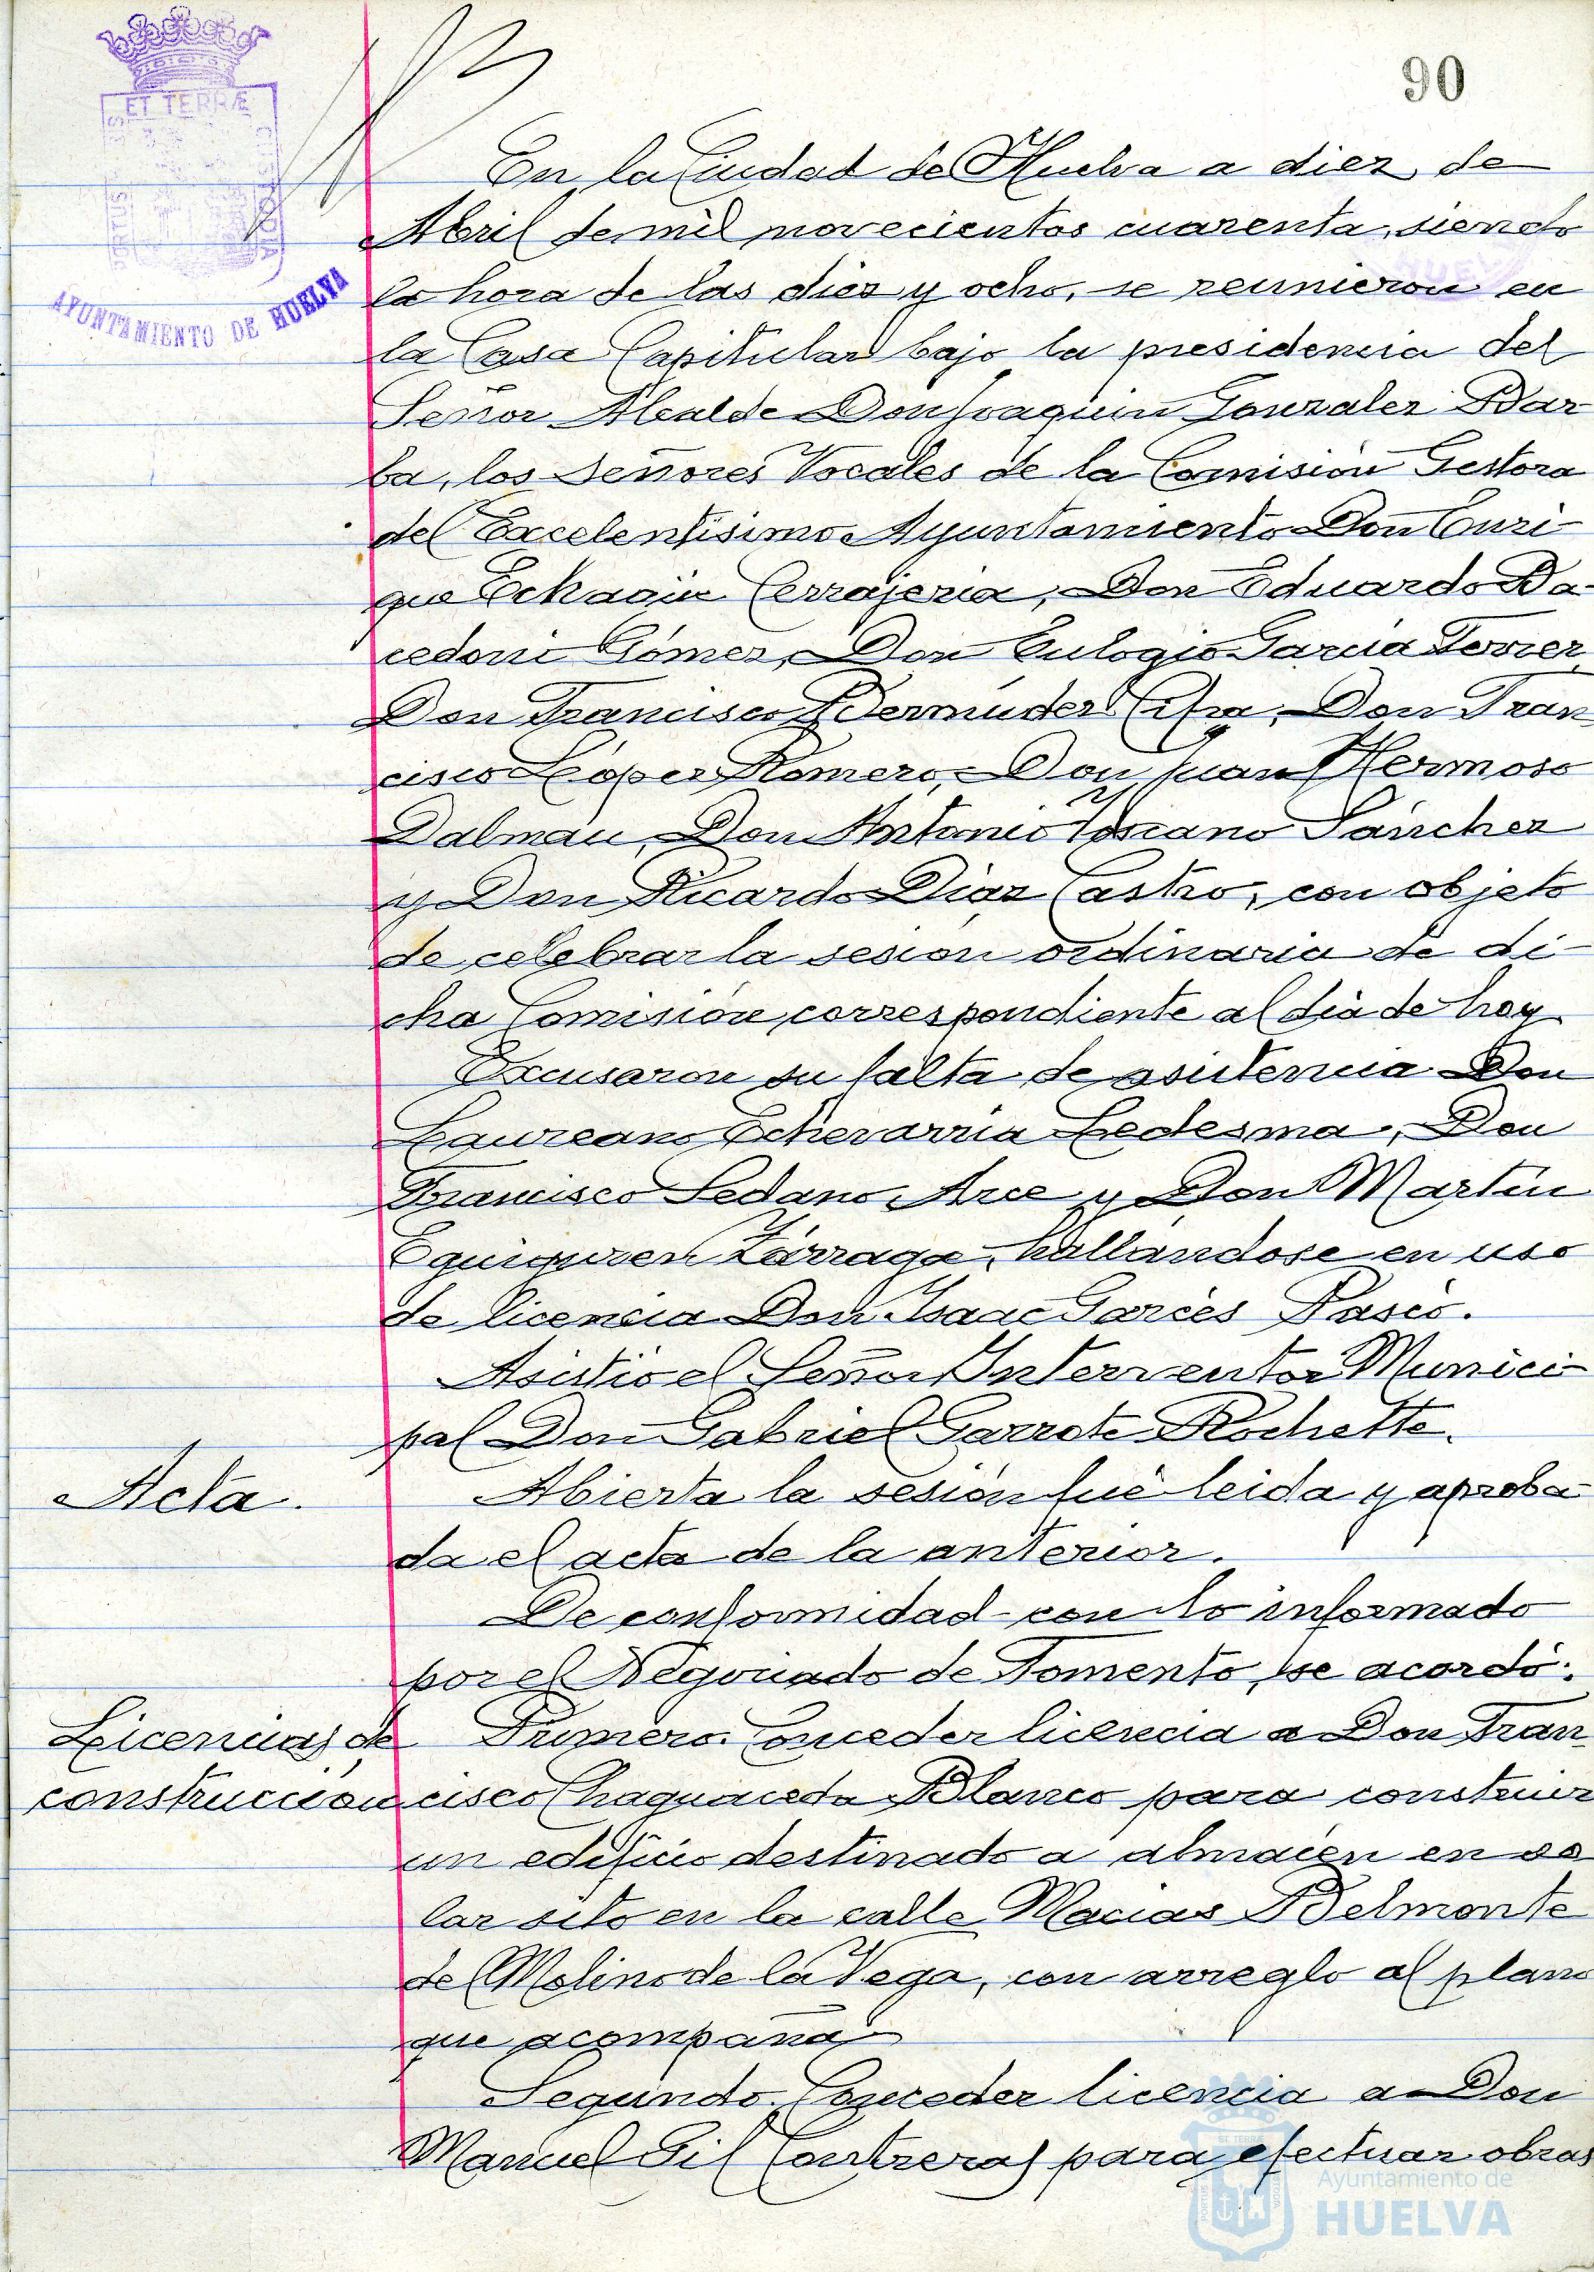 90
ET TERRÆ
PORTUS
CUSTODIA
AYUNTAMIENTO DE HUELVA
En la Ciudad de Huelva a diez de
Abril de mil novecientos cuarenta, siendo
la hora de las diez y ocho, se reunieron en
la Casa Capitular bajo la presidencia del
Señor Alcalde Don Joaquin Gonzalez Bar-
ba, los Señores Vocales de la Comisión Gestora
del Excelentísimo Ayuntamiento Don Enri-
que Echagüe Cerrajeria, Don Eduardo Da-
cedoni Gómez, Don Eulogio Garcia Ferrer
Don Francisco Bermúdez Cifra, Don Fran
cisco López Romero, Don Juan Hermoso
Dalmau, Don Antonio Toscano Sánchez
y Don Ricardo Diaz Castro, con objeto
de celebrar la sesion ordinaria de di-
cha Comisión, correspondiente al dia de hoy.
Excusaron su falta de asistencia Don
Laureano Echevarria Ledesma, Don
Francisco Sedano Arce y Don Martin
Eguiguren Zárraga, hallandose en uso
de licencia Don Isaac Garcés Rascó.
Asistió el Señor Interventor Munici-
pal Don Gabriel Garrote Rochette.
Acta.
Abierta la sesión fué leida y aproba-
da el acta de la anterior.
De conformidad con lo informado
por el Negociado de Fomento, se acordó:
Licencias de
construccion
Primero. Conceder licencia a Don Fran
cisco Chaguaceda Blanco para construir
un edificio destinado a almacén en so
lar sito en la calle Macias Belmonte
de Molino de la Vega, con arreglo al plano
que acompaña
Segundo. Conceder licencia a Don
Manuel Gil Contreras para efectuar obras
Ayuntamiento de
HUELVA